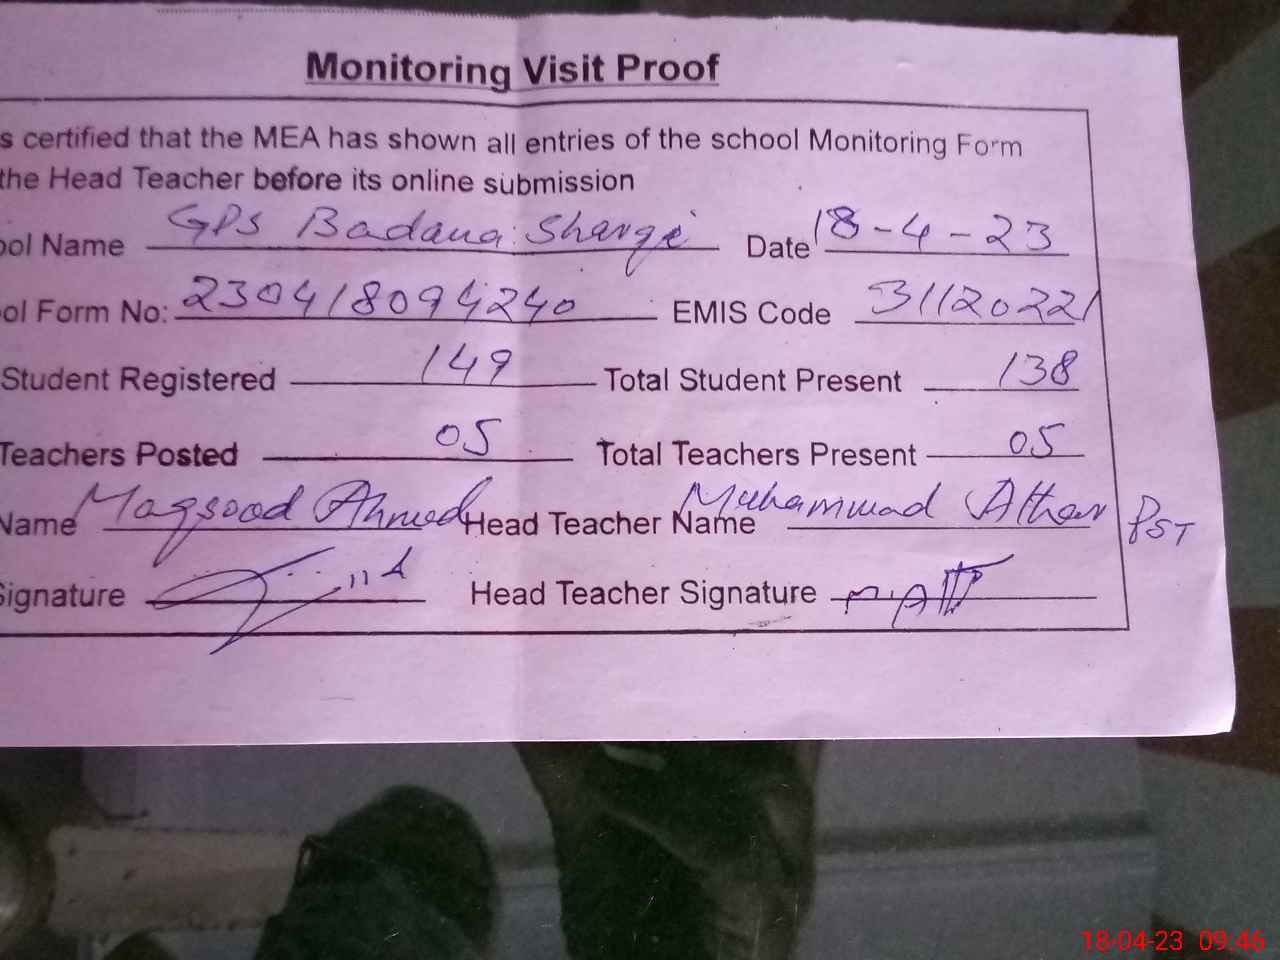 Monitoring Visit Proof
s certified that the MEA has shown all entries of the school Monitoring Form
the Head Teacher before its online submission
ool Name GPS Badana Sharqi Date 18-4-23
ol Form No: 230418094240 EMIS Code 31120221
Student Registered 149 Total Student Present 138
Teachers Posted 05 Total Teachers Present 05
Name Maqsood Ahmed Head Teacher Name Muhammad Athar PST
Signature Head Teacher Signature
18-04-23 09:46